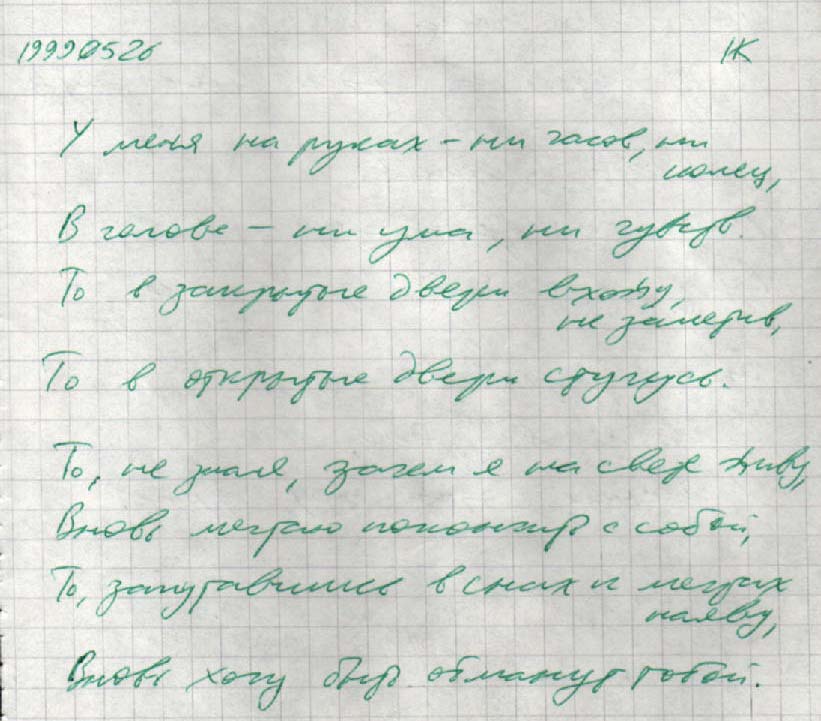 19990526 НК
У меня на руках – ни часов, ни
колец,
В голове – ни ума, ни чувств.
То в закрытые двери вхожу,
не заметив,
То в открытые двери стучусь.
То, не зная, зачем я на свете живу,
Вновь мечтаю покончить с собой,
То, запутавшись в снах и мечтах
наяву,
Вновь хочу быть обманут тобой.